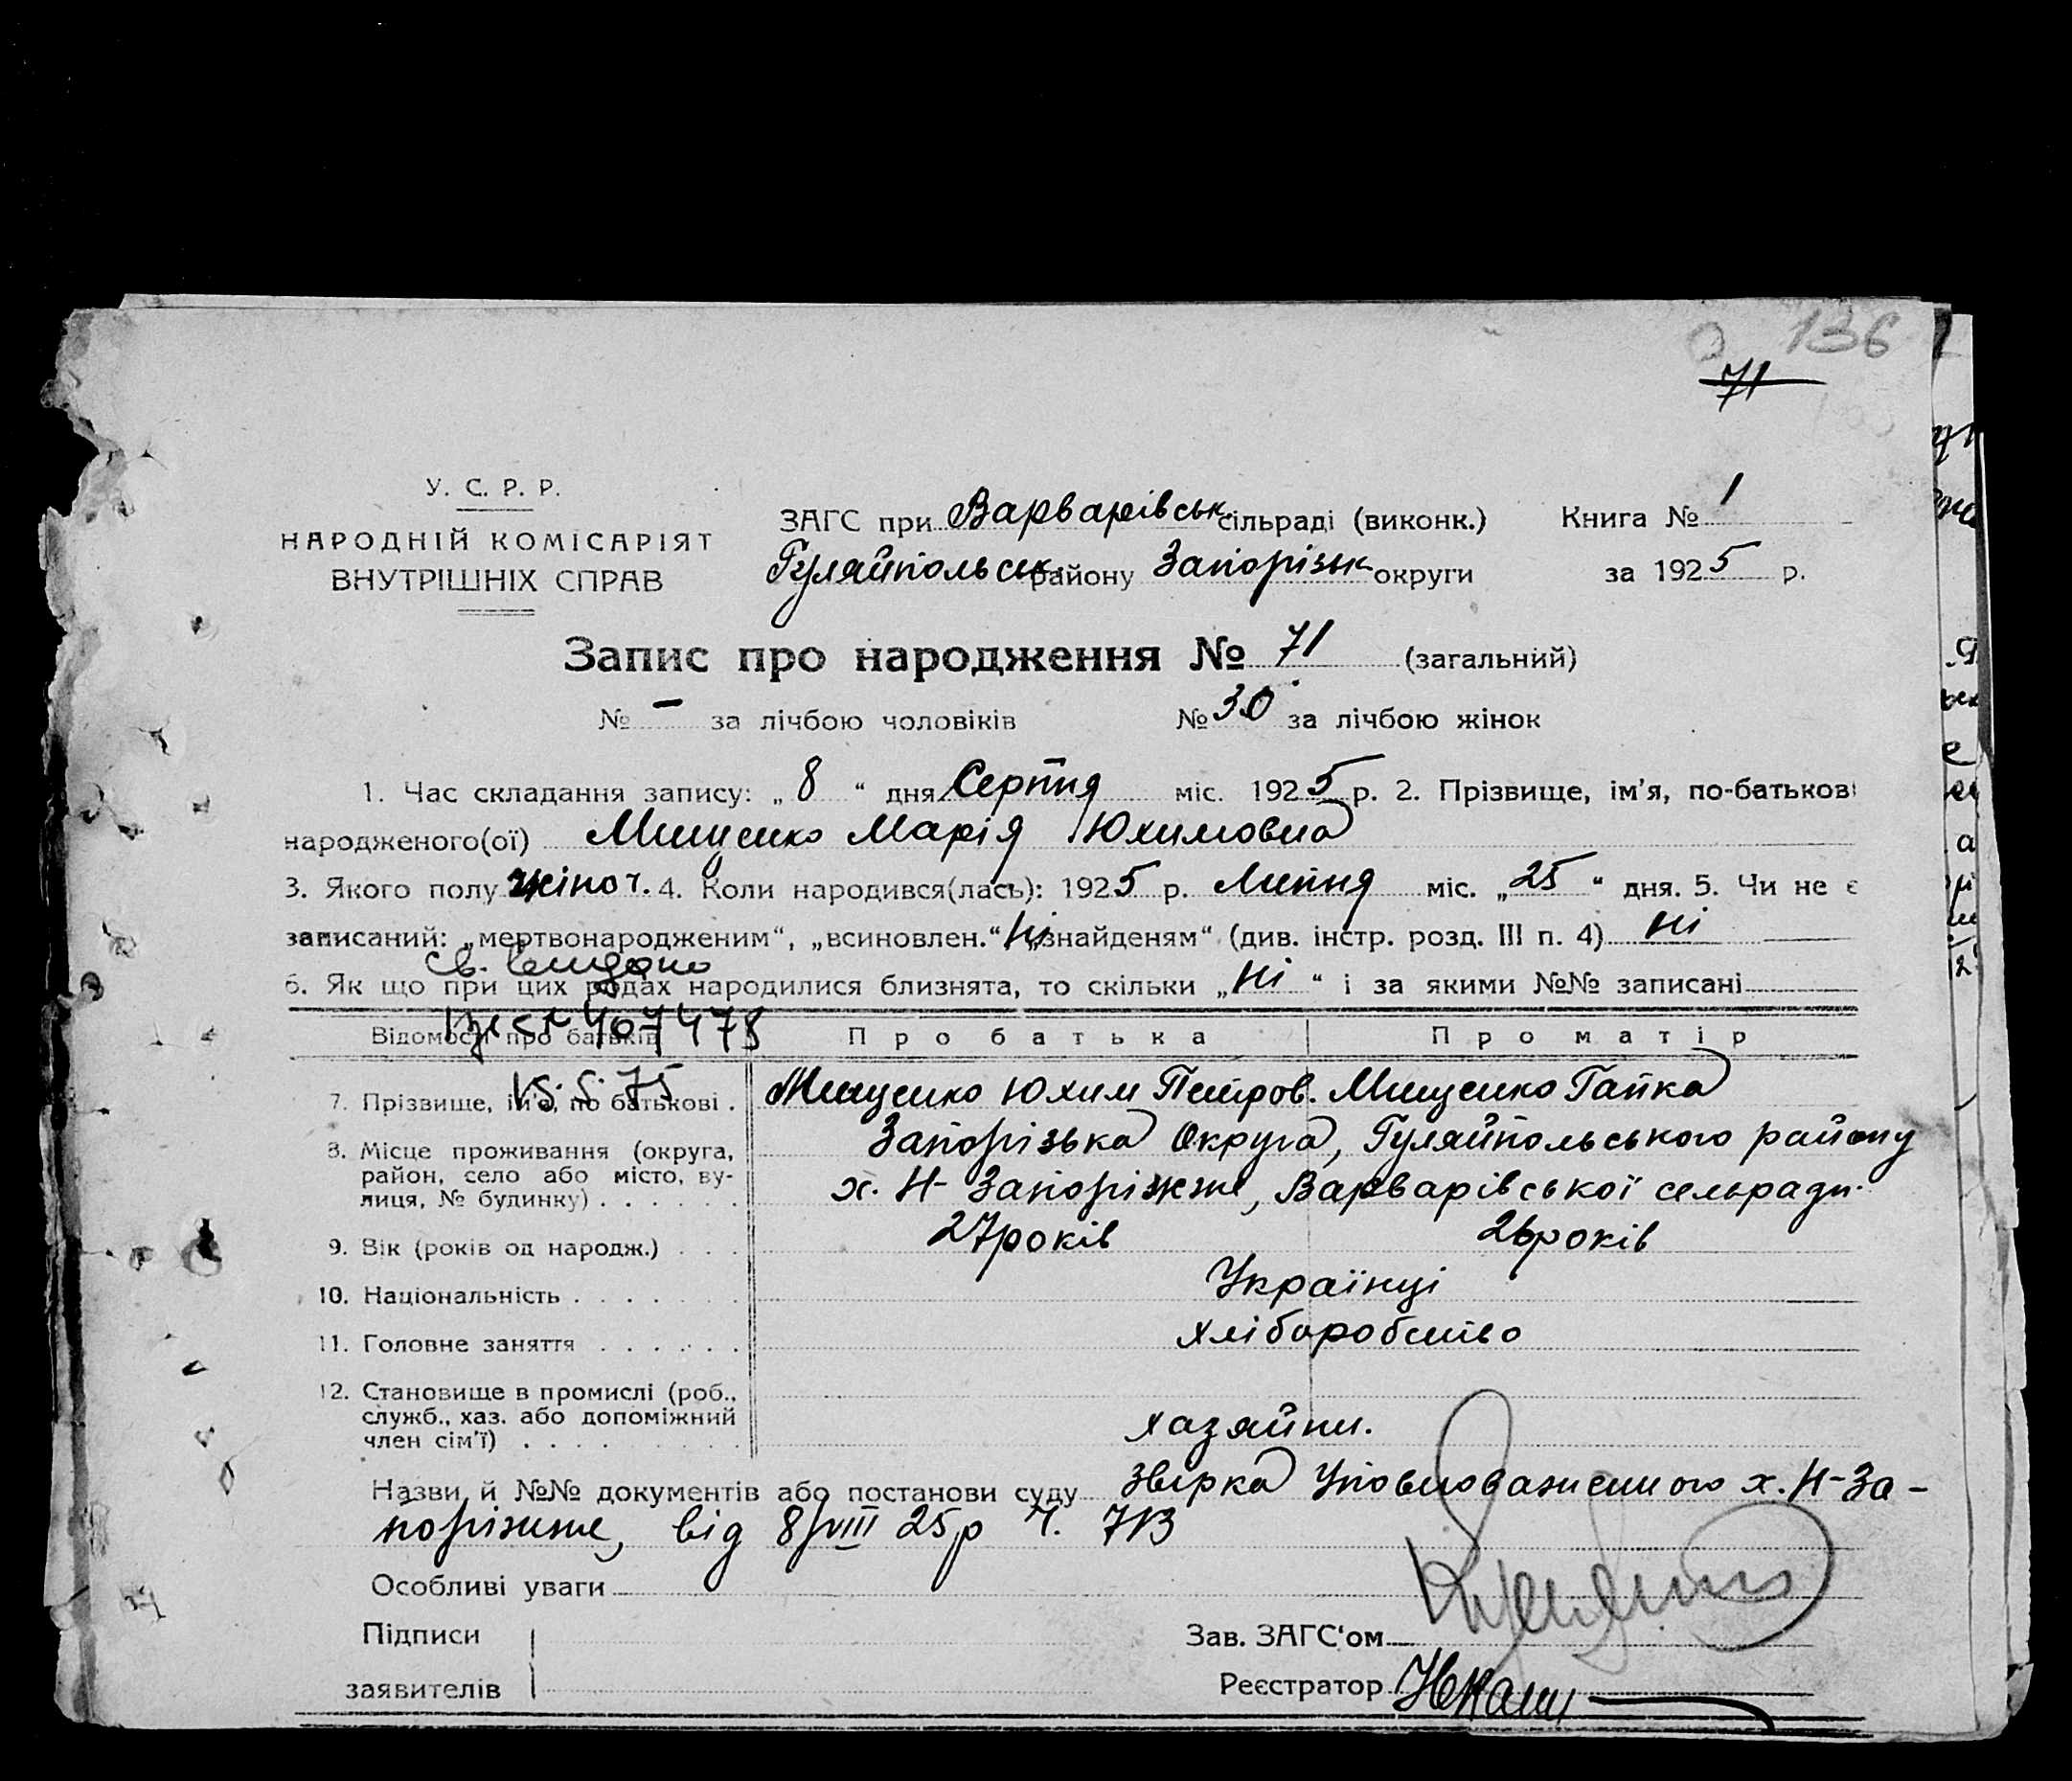 136
71
У. С. Р. Р.
НАРОДНІЙ КОМІСАРІЯТ
ВНУТРІШНІХ СПРАВ
ЗАГС при Варварівськ сільраді (виконк.) Книга № 1
Гуляйпольськ району Запорізьк округи за 1925 р.
Запис про народження № 71 (загальний)
№ – за лічбою чоловіків № 30 за лічбою жінок
1. Час складання запису: „ 8 “ дня Серпня міс. 1925 р. 2. Прізвище, ім’я, по-батькові
народженого(ої) Мищенко Марія Юхимовна
3. Якого полу жіноч. 4. Коли народився(лась): 1925 р. Липня міс. „ 25 “ дня. 5. Чи не є
записаний: „мертвонародженим“, „всиновлен.“ Ні „знайденям“ (див. інстр. розд. III п. 4) ні
св. видано
6. Як що при цих родах народилися близнята, то скільки „ ні “ і за якими №№ записані
407478
Відомости про батьків Про батька Про матір
7. Прізвище, ім’я, по батькові . Мищенко Юхим Петров. Мищенко Гапка
8. Місце проживання (округа, Запорізька Округа, Гуляйпольського району
район, село або місто, ву-
лиця, № будинку) . . . . . . х. Н-Запоріжже, Варварівської сельради.
9. Вік (років од народж.) . . . 27 років 26 років
10. Національність . . . . . . Українці
11. Головне заняття . . . . . . хліборобство
12. Становище в промислі (роб.,
служб., хаз. або допоміжний
член сім’ї) . . . . . . . . . хазяйни.
Назви й №№ документів або постанови суду Звірка Уповноваженного х. Н-За-
поріжже, від 8/VIII 25р Ч. 713
Особливі уваги
Підписи
Зав. ЗАГС‘ом
заявителів
Реєстратор